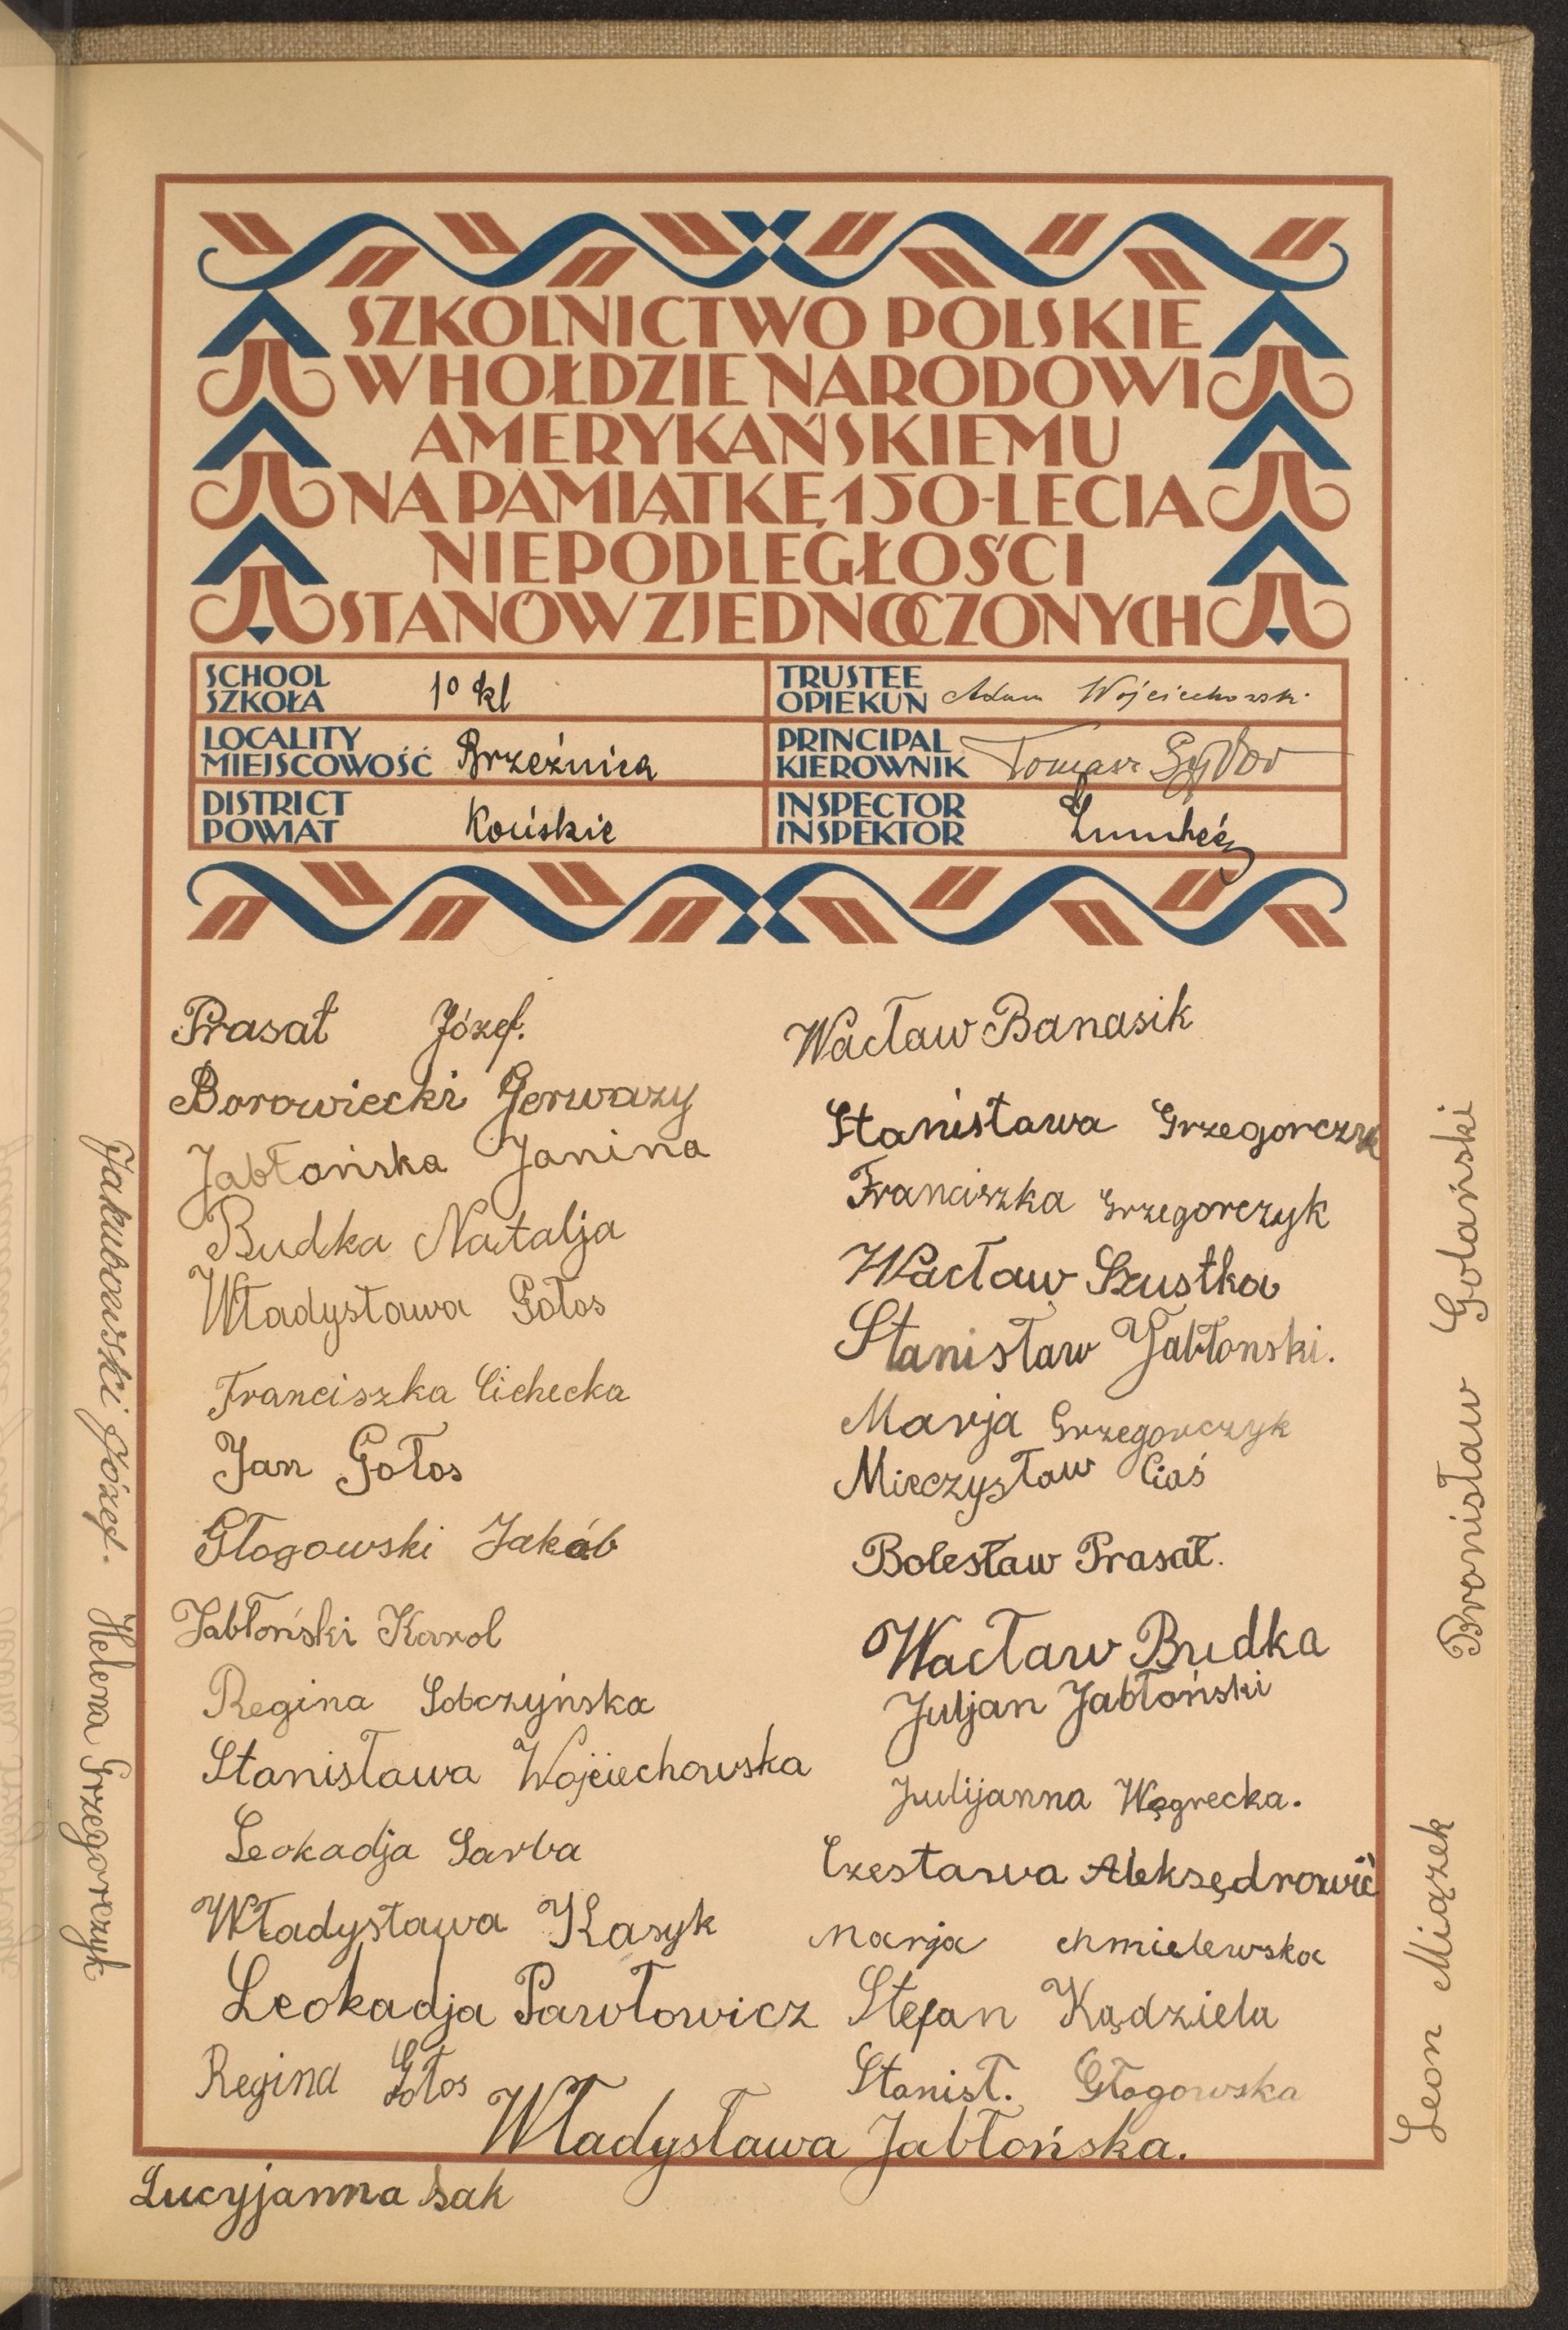 SZKOLNICTWO POLSKIE
W HOŁDZIE NARODOWI
AMERYKAŃSKIEMU
NA PAMIĄTKĘ 150-LECIA
NIEPODLEGŁOŚCI
STANÓW ZJEDNOCZONYCH
SCHOOL
SZKOŁA 10 kl
TRUSTEE
OPIEKUN Adam Wojciechowski
LOCALITY
MIEJSCOWOŚĆ Brzeźnica
PRINCIPAL
KIEROWNIK Tomasz
DISTRICT
POWIAT Końskie
INSPECTOR
INSPEKTOR
Prasał Józef.
Borowiecki Gerwazy
Jabłońska Janina
Budka Natalja
Władysława Gołos
Franciszka Cichecka
Jan Gołos
Głogowski Jakób
Jabłoński Karol
Regina Sobczyńska
Stanisława Wojciechowska
Leokadja Sarba
Władysława Kasyk
Leokadja Pawłowicz
Regina Gołos
Wacław Banasik
Stanisława Grzegorczyk
Franciszka Grzegorczyk
Wacław Szustka
Stanisław Jabłonski.
Marja Grzegorczyk
Mieczysław Ciaś
Bolesław Prasał.
Wacław Budka
Juljan Jabłoński
Julijanna Węgrecka.
Czestawa Aleksędrowić
Marja chmielewska
Stefan Kądziela
Stanisł. Głogowska
Władysława Jabłońska.
Lucyjanna Sak
Jakubowski Józef.
Helena Grzegorczyk
Bronisław Golański
Leon Miązek